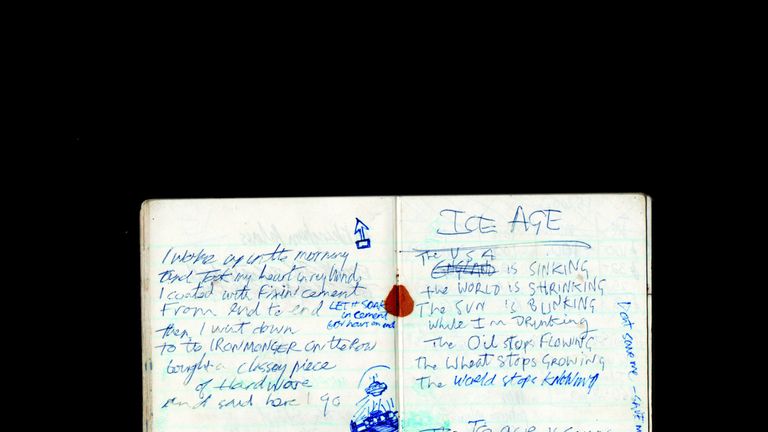 I woke up in the morning
And took my heart in my hand
I coated with Fixin' cement
From end to end
LET IT SOAK
in cement
for hours on end
then I went down
to to IRONMONGER on the ROW
bought a classey piece
of Hardware
and said here I go
ICE AGE
The U.S.A
ENGLAND is SINKING
the WORLD is SHRINKING
The SUN is BLINKING
while I'm DRINKING
The Oil stops FLOWING
The Wheat stops GROWING
The World stops KNOWING
The Ice age is